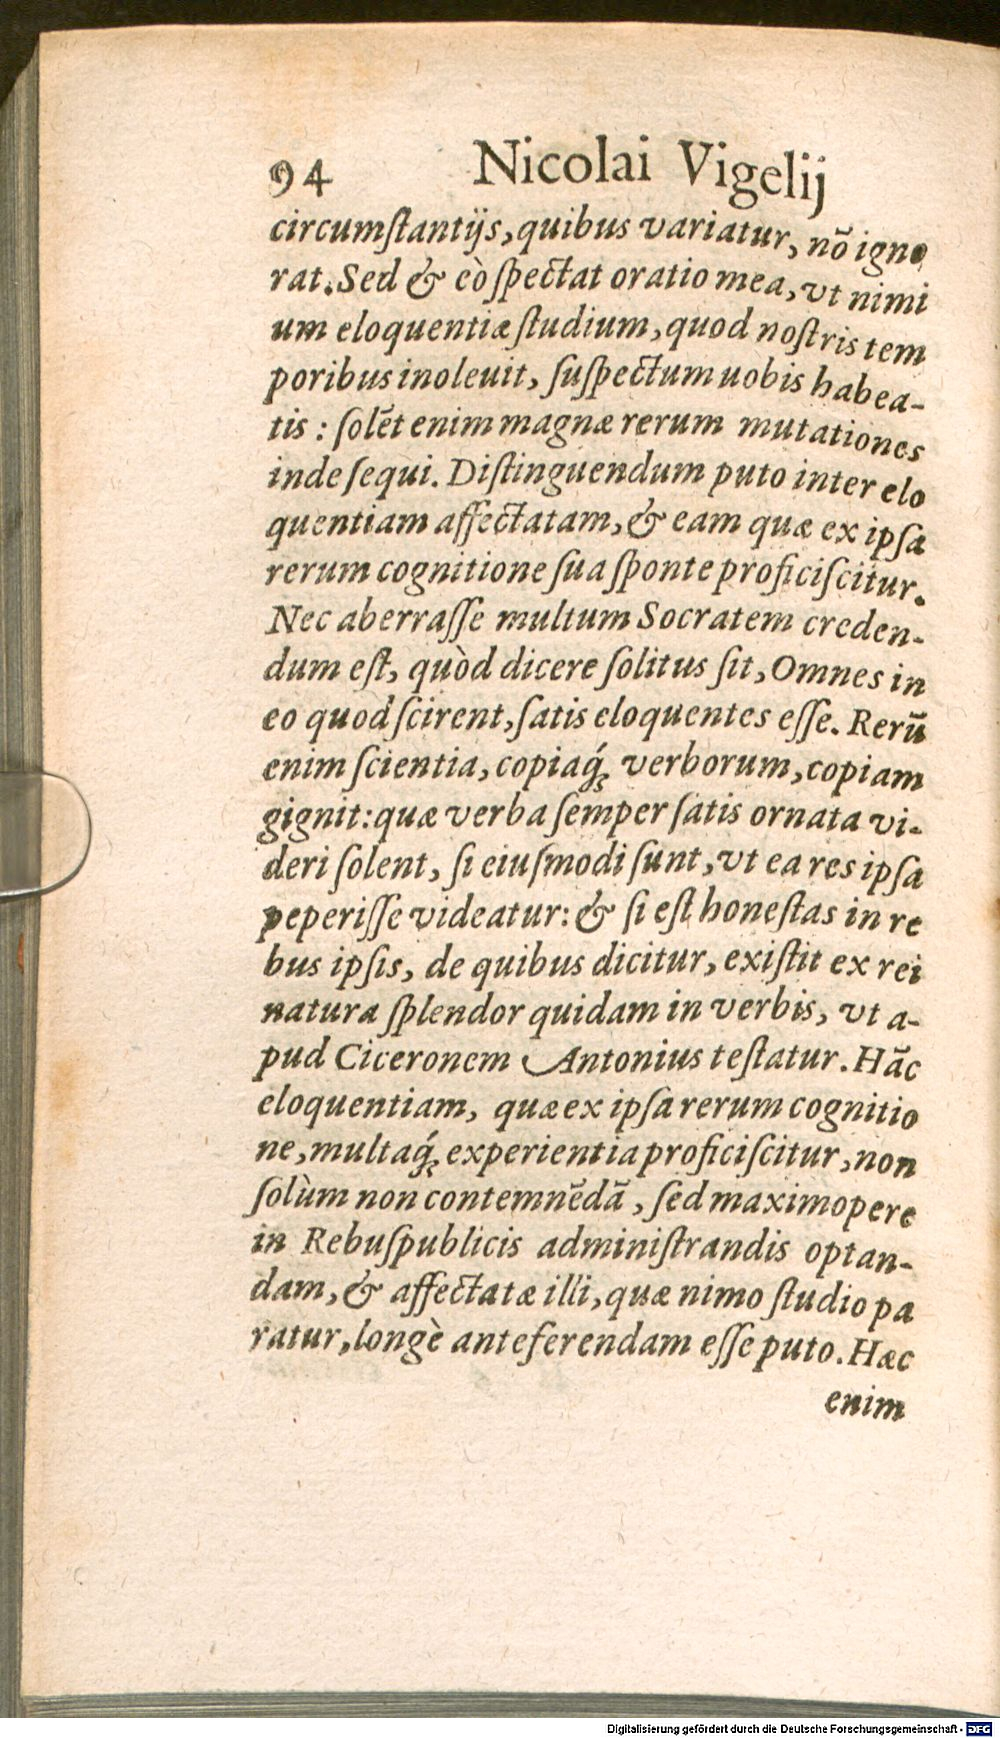 94 Nicolai Vigelij
circumſtantijs, quibus variatur, nō igno
rat. Sed & eò ſpectat oratio mea, vt nimi
um eloquentiæ ſtudium, quod noſtris tem
poribus inoleuit, ſuſpectum uobis habea-
tis : ſolēt enim magnæ rerum mutationes
inde ſequi. Diſtinguendum puto inter elo
quentiam affectatam, & eam quæ ex ipſa
rerum cognitione ſua ſponte proficiſcitur.
Nec aberraſſe multum Socratem creden-
dum eſt, quòd dicere ſolitus ſit, Omnes in
eo quod ſcirent, ſatis eloquentes eſſe. Rerū
enim ſcientia, copiaq́; verborum, copiam
gignit: quæ verba ſemper ſatis ornata vi-
deri ſolent, ſi eiuſmodi ſunt, vt ea res ipſa
peperiſſe videatur: & ſi eſt honeſtas in re
bus ipſis, de quibus dicitur, exiſtit ex rei
natura ſplendor quidam in verbis, vt a-
pud Ciceronem Antonius teſtatur. Hāc
eloquentiam, quæ ex ipſa rerum cognitio
ne, multaq́; experientia proficiſcitur, non
ſolùm non contemnēdā, ſed maximopere
in Rebuſpublicis adminiſtrandis optan-
dam, & affectatæ illi, quæ nimo ſtudio pa
ratur, longè anteferendam eſſe puto. Hæc
enim
Digitalisierung gefördert durch die Deutsche Forschungsgemeinschaft - DFG